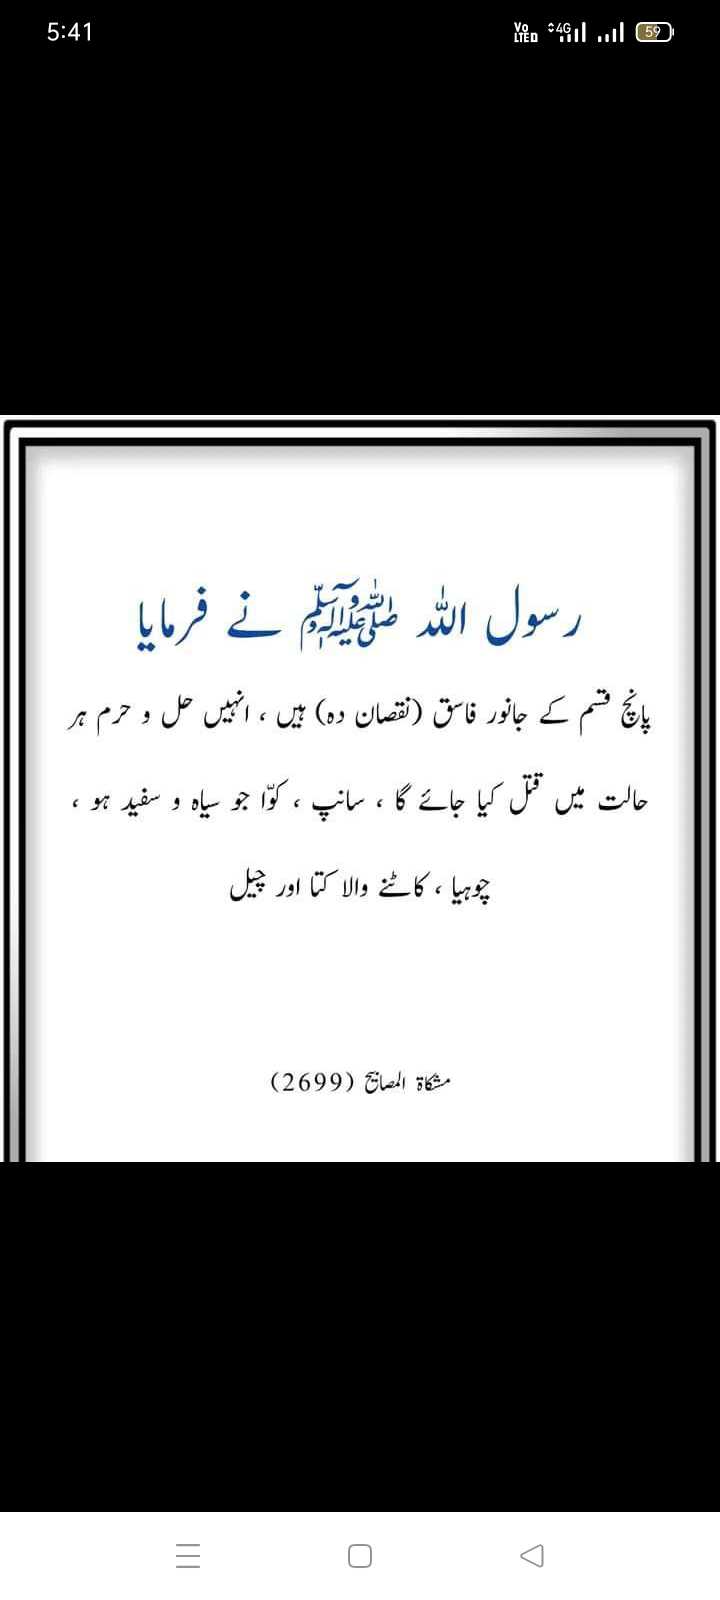 5:41
Vo LTED 4G 59
رسول اللہ ﷺ نے فرمایا
پانچ قسم کے جانور فاسق (نقصان دہ) ہیں ، انہیں حل و حرم ہر
حالت میں قتل کیا جائے گا ، سانپ ، کوّا جو سیاہ و سفید ہو ،
چوہیا ، کاٹنے والا کتا اور چیل
مشکاۃ المصابیح (2699)